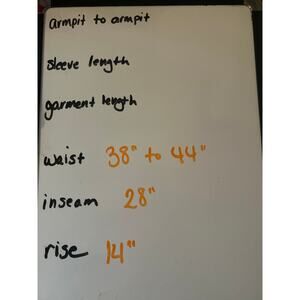 armpit to armpit
sleeve length
garment length
waist 38" to 44"
inseam 28"
rise 14"